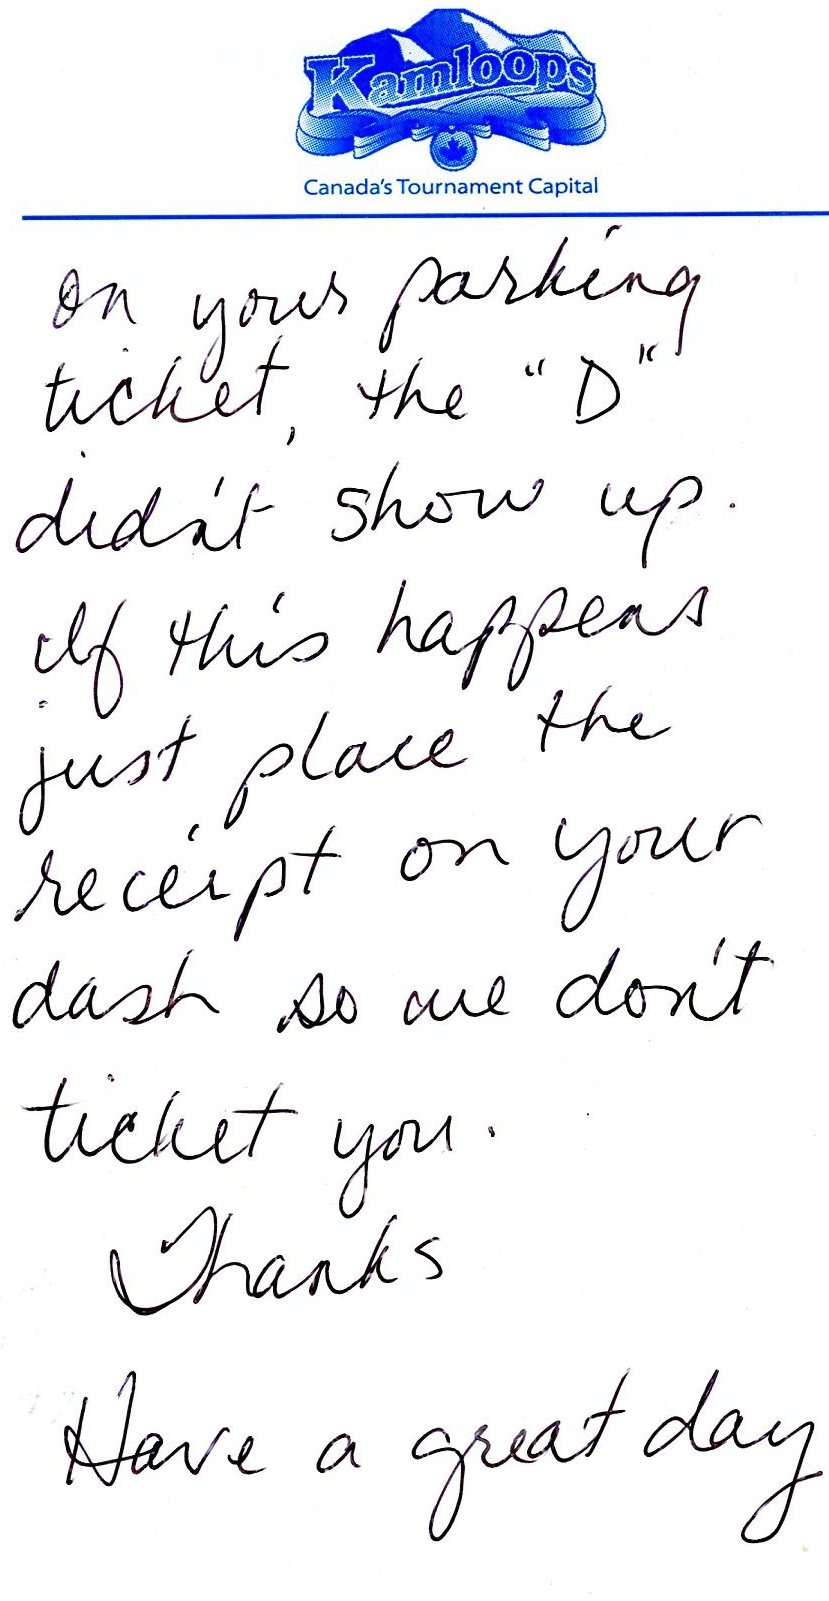 Kamloops
Canada's Tournament Capital
On your parking
ticket, the "D"
didn't show up.
If this happens
just place the
receipt on your
dash so we don't
ticket you.
Thanks
Have a great day